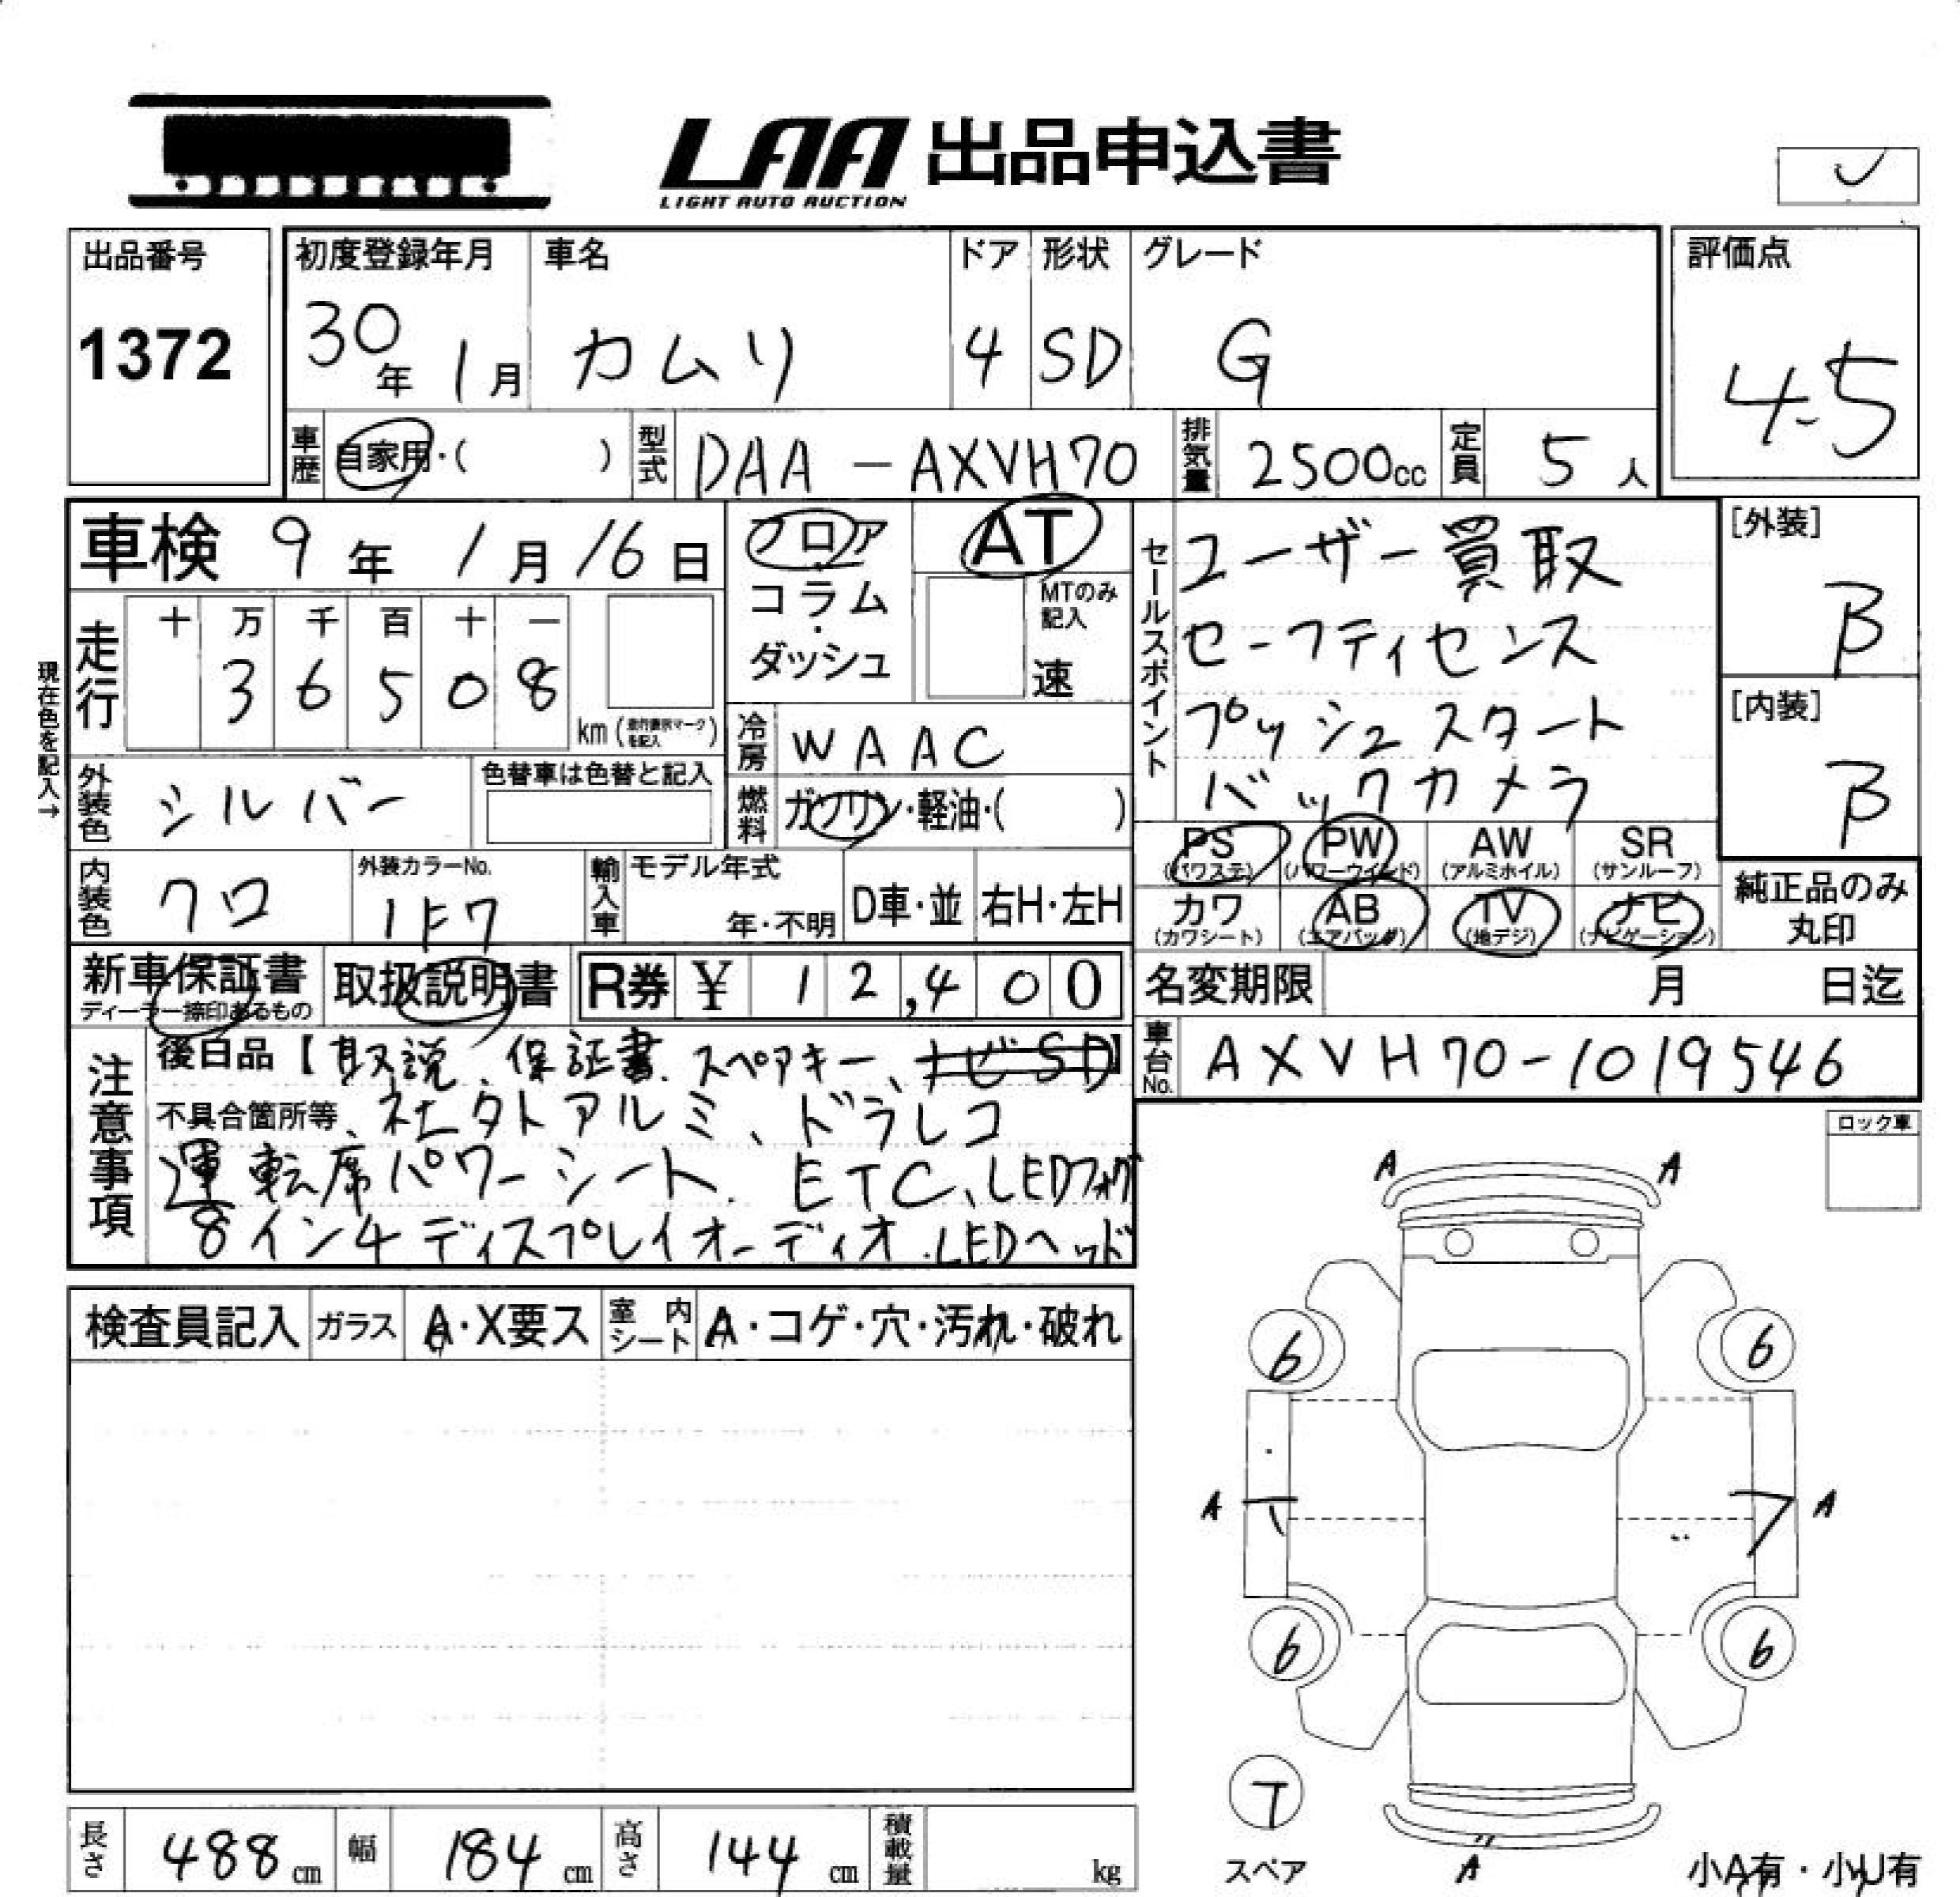 LAA 出品申込書
LIGHT AUTO AUCTION
出品番号
1372
初度登録年月
30年 1月
車名
カムリ
ドア
4
形状
SD
グレード
G
評価点
4.5
車歴 自家用・( )
型式 DAA-AXVH70
排気量 2500cc
定員 5人
車検 9年 1月 16日
フロア・コラム・ダッシュ
AT
MTのみ記入
速
セールスポイント
ユーザー買取
セーフティセンス
プッシュスタート
バックカメラ
[外装]
B
[内装]
B
現在色を記入→
走行
十 万 千 百 十 一
3 6 5 0 8
km
冷房 WAAC
燃料 ガソリン・軽油・( )
外装色 シルバー
色替車は色替と記入
内装色 クロ
外装カラーNo.
1F7
輸入車
モデル年式
年・不明
D車・並
右H・左H
PS (パワステ)
PW (パワーウインド)
AW (アルミホイル)
SR (サンルーフ)
カワ (カワシート)
AB (エアバッグ)
TV (地デジ)
ナビ (ナビゲーション)
純正品のみ丸印
新車保証書
ディーラー捺印あるもの
取扱説明書
R券 ¥ 12,400
名変期限 月 日迄
車台No. AXVH70-1019546
注意事項
後日品【取説、保証書、スペアキー、ナビSD】
不具合箇所等、社外アルミ、ドラレコ
運転席パワーシート、ETC、LEDフォグ
8インチディスプレイオーディオ、LEDヘッド
ロック車
検査員記入
ガラス A・X要ス
室内シート A・コゲ・穴・汚れ・破れ
A A
6 6
A A
6 6
T
スペア
A
小A有・小U有
長さ 488cm
幅 184cm
高さ 144cm
積載量 kg